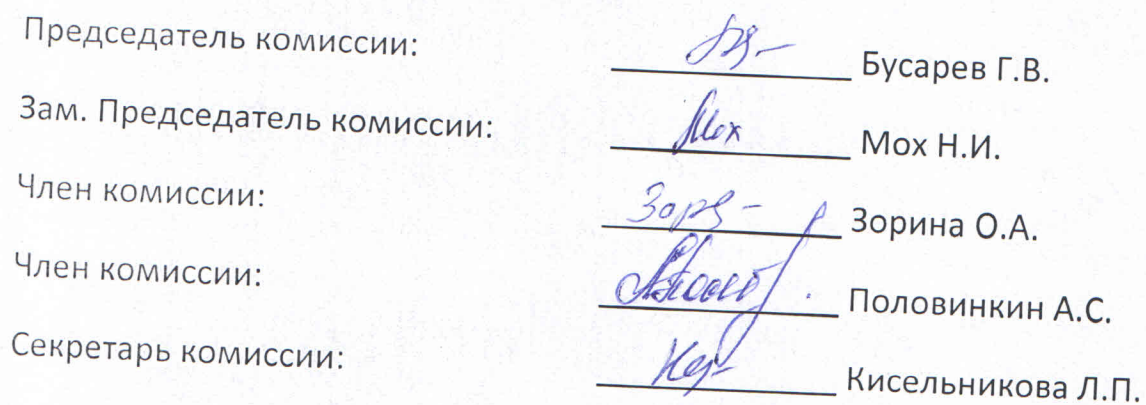 Председатель комиссии: Бусарев Г.В.
Зам. Председатель комиссии: Мох Мох Н.И.
Член комиссии: Зорина О.А.
Член комиссии: Половинкин А.С.
Секретарь комиссии: Кисельникова Л.П.